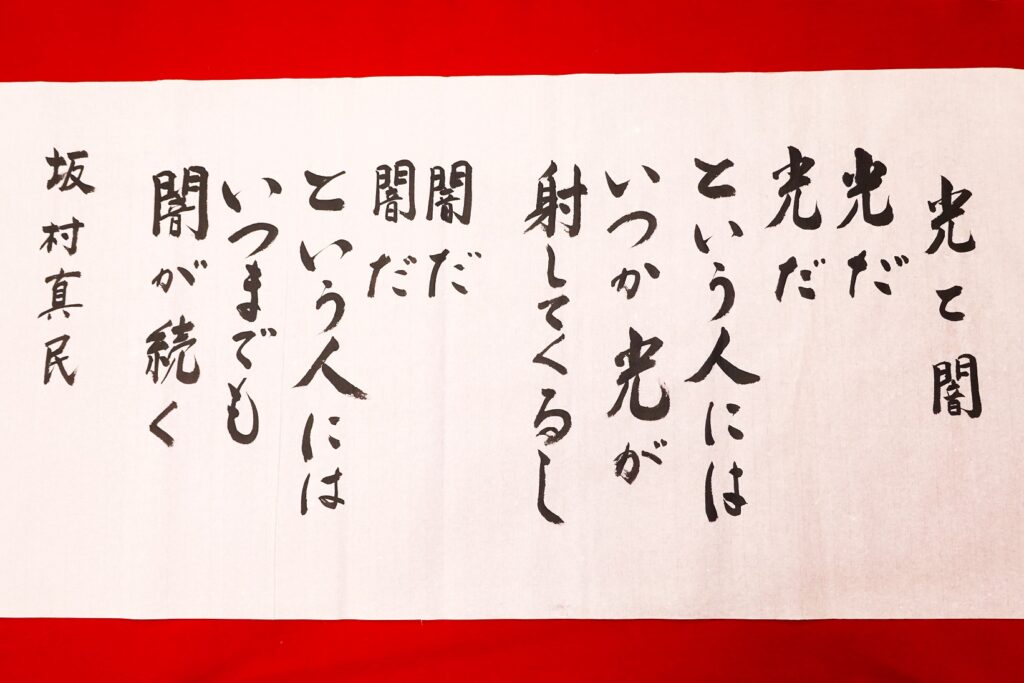 光と闇
光だ
光だ
という人には
いつか光が
射してくるし
闇だ
闇だ
という人には
いつまでも
闇が続く
坂村真民